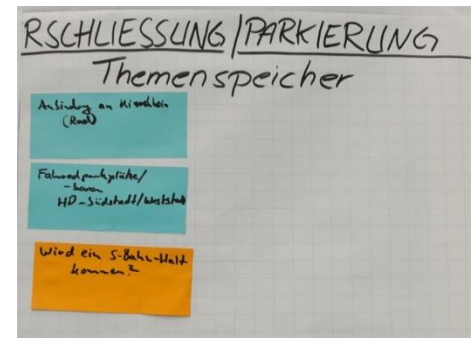 RSCHLIESSUNG/PARKIERUNG
Themenspeicher
Anbindung an Kirchheim
(Rad)
Fahrradparkplätze/
HD-Südstadt/Weststadt
Wird ein S-Bahn-Halt
kommen?